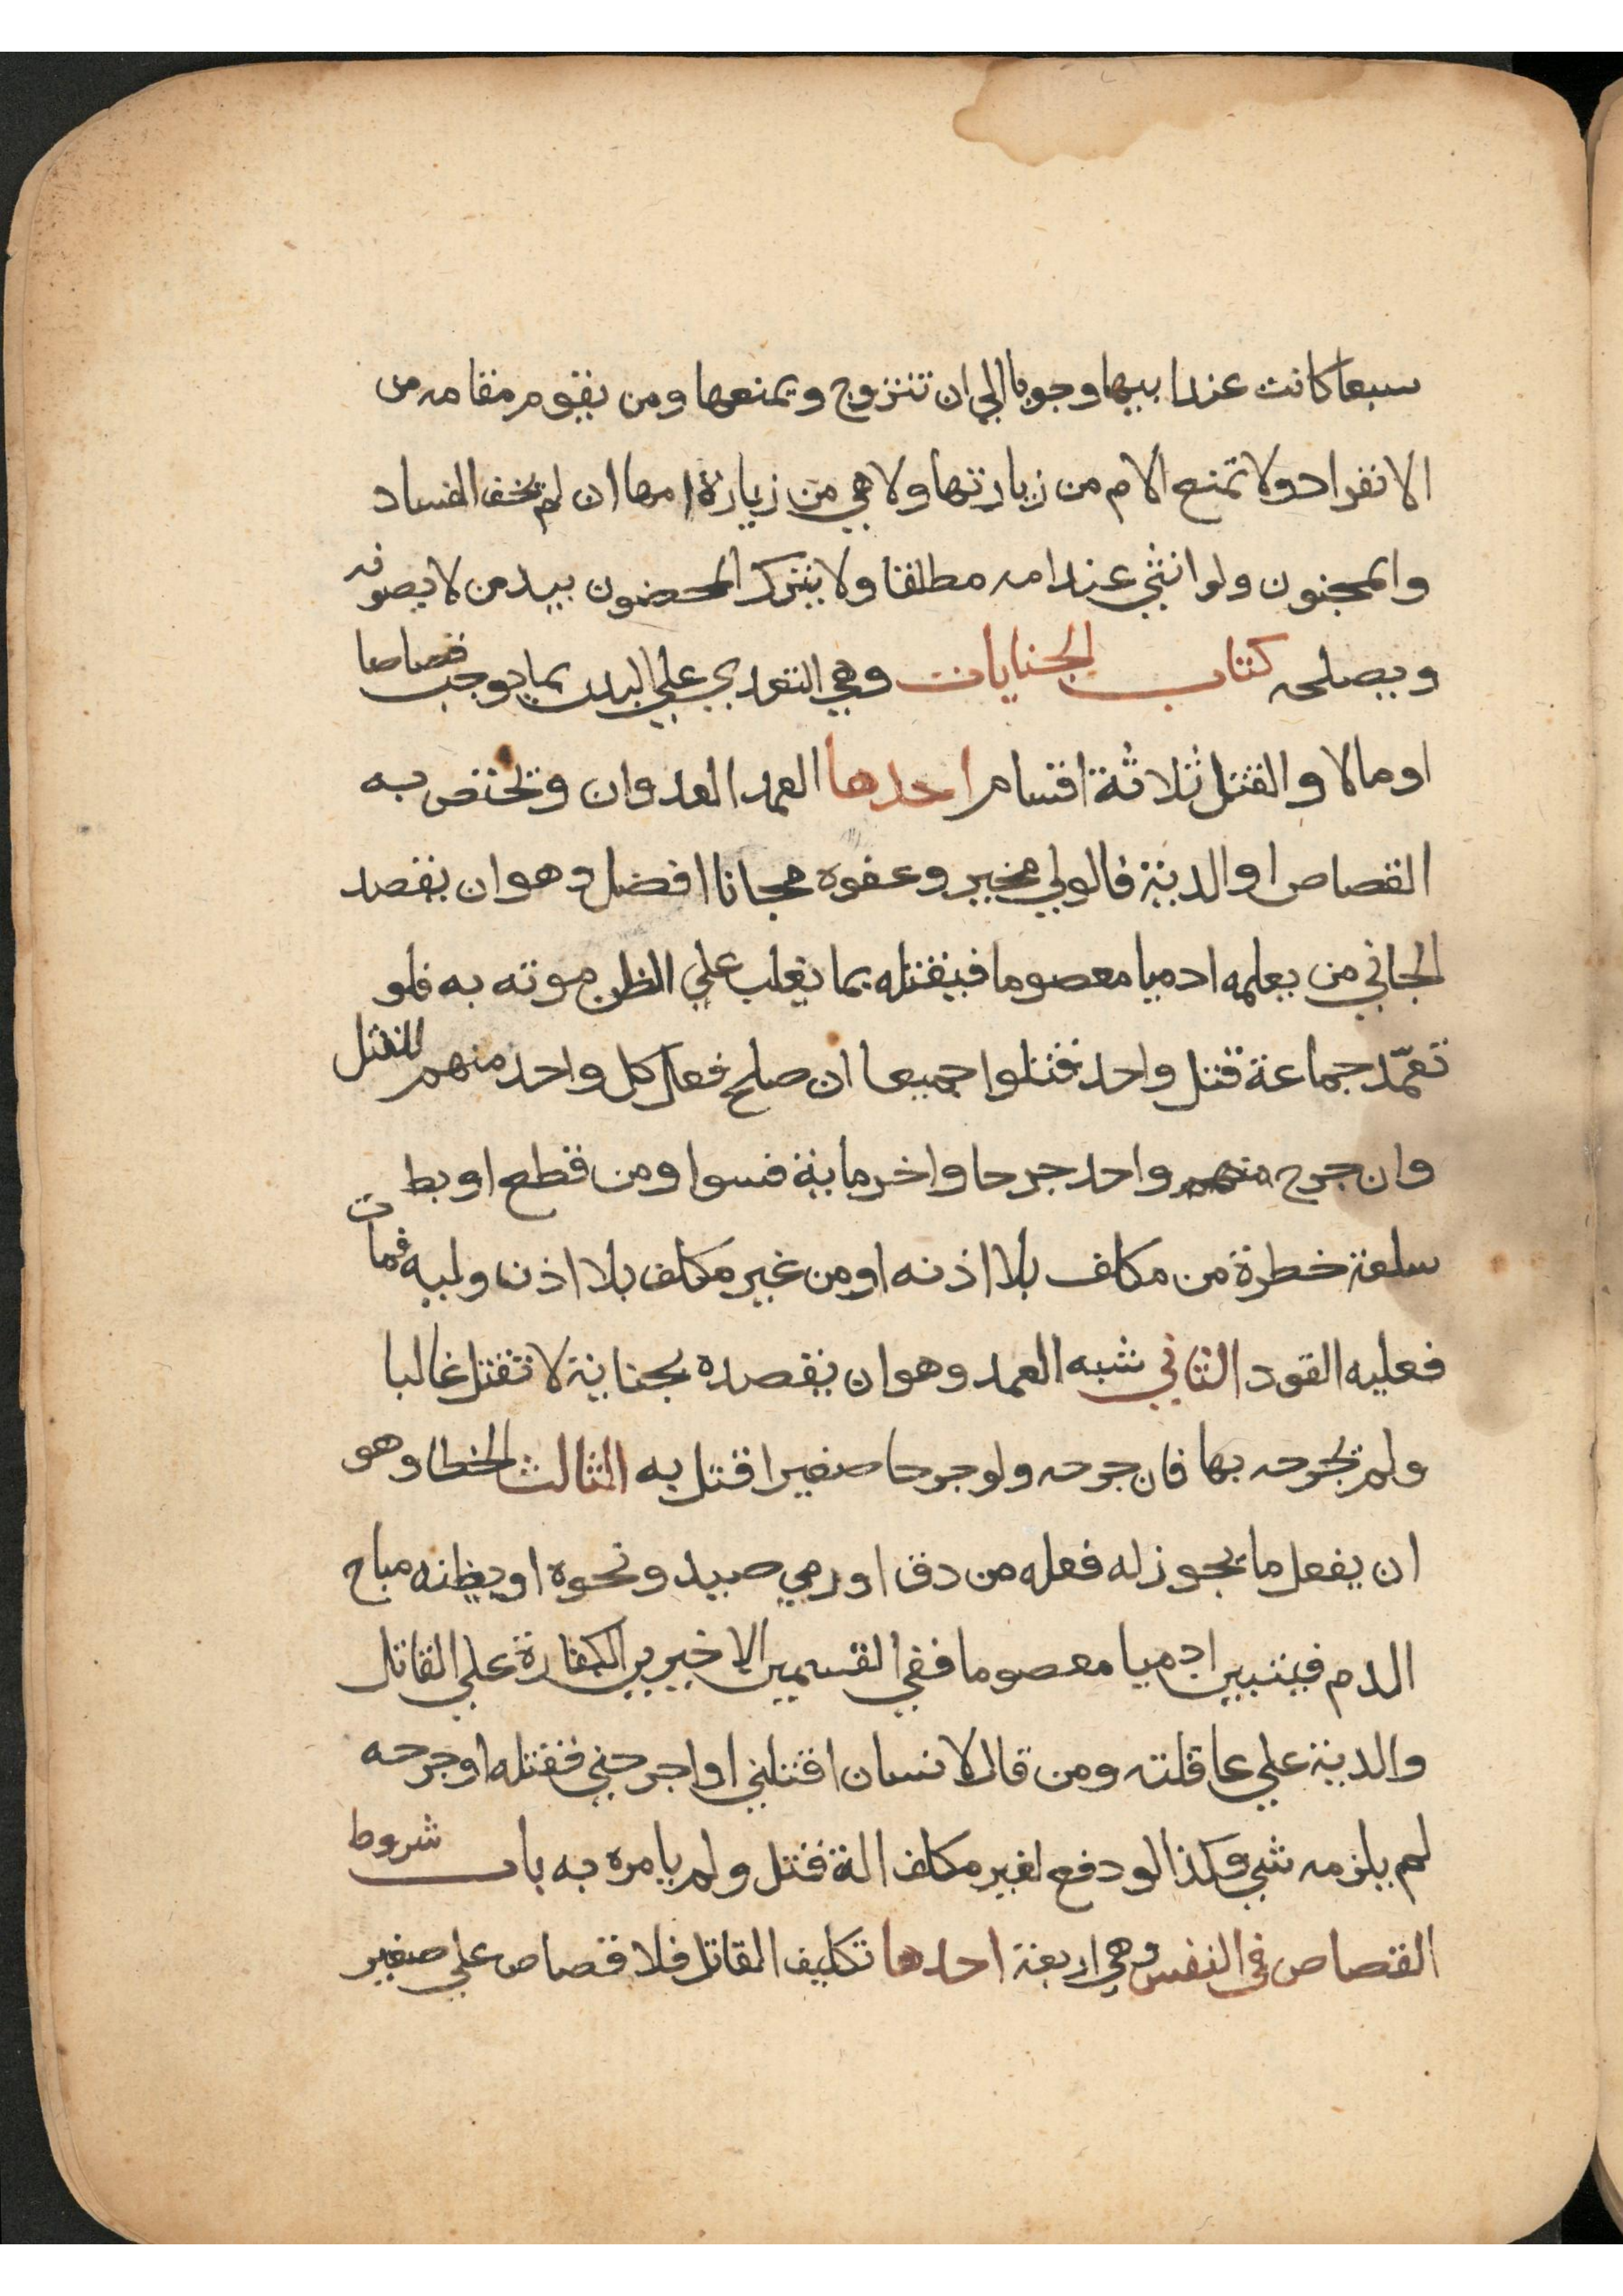 سبعا كانت عند ابيها وجوبا الي ان تتزوج ويمنعها ومن يقوم مقامه من
الانفراد ولا تمنع الام من زيارتها ولا هي من زيارة امها ان لم يخف الفساد
والمجنون ولو انثي عند امه مطلقا ولا يترك المحضون بيد من لا يصونه
ويصلحه كتاب الجنايات وهي التعدي علي البدن بما يوجب قصاصا
او مالا والقتل ثلاثة اقسام احدها العمد العدوان ويختص به
القصاص او الدية فالولي مخير وعفوه مجانا افضل وهو ان يقصد
الجاني من يعلمه ادميا معصوما فيقتله بما يغلب علي الظن موته به فلو
تعمّد جماعة قتل واحد قتلوا جميعا ان صلح فعل كل واحد منهم للقتل
وان جرح منهم واحد جرحا واخر ماية فسوا ومن قطع او بط
سلعة خطرة من مكلف بلا اذنه او من غير مكلف بلا اذن وليه فمات
فعليه القود الثاني شبه العمد وهو ان يقصده بجناية لا تقتل غالبا
ولم يجرحه بها فان جرحه ولو جرحا صغيرا قتل به الثالث الخطا وهو
ان يفعل ما يجوز له فعله من دق او رمي صيد ونحوه او يظنه مباح
الدم فيتبين ادميا معصوما ففي القسمين الاخيرين الكفارة علي القاتل
والدية علي عاقلته ومن قال لانسان اقتلني او اجرحني فقتله او جرحه
لم يلزمه شي وكذا لو دفع لغير مكلف الة قتل ولم يامره به باب شروط
القصاص في النفس وهي اربعة احدها تكليف القاتل فلا قصاص علي صغير